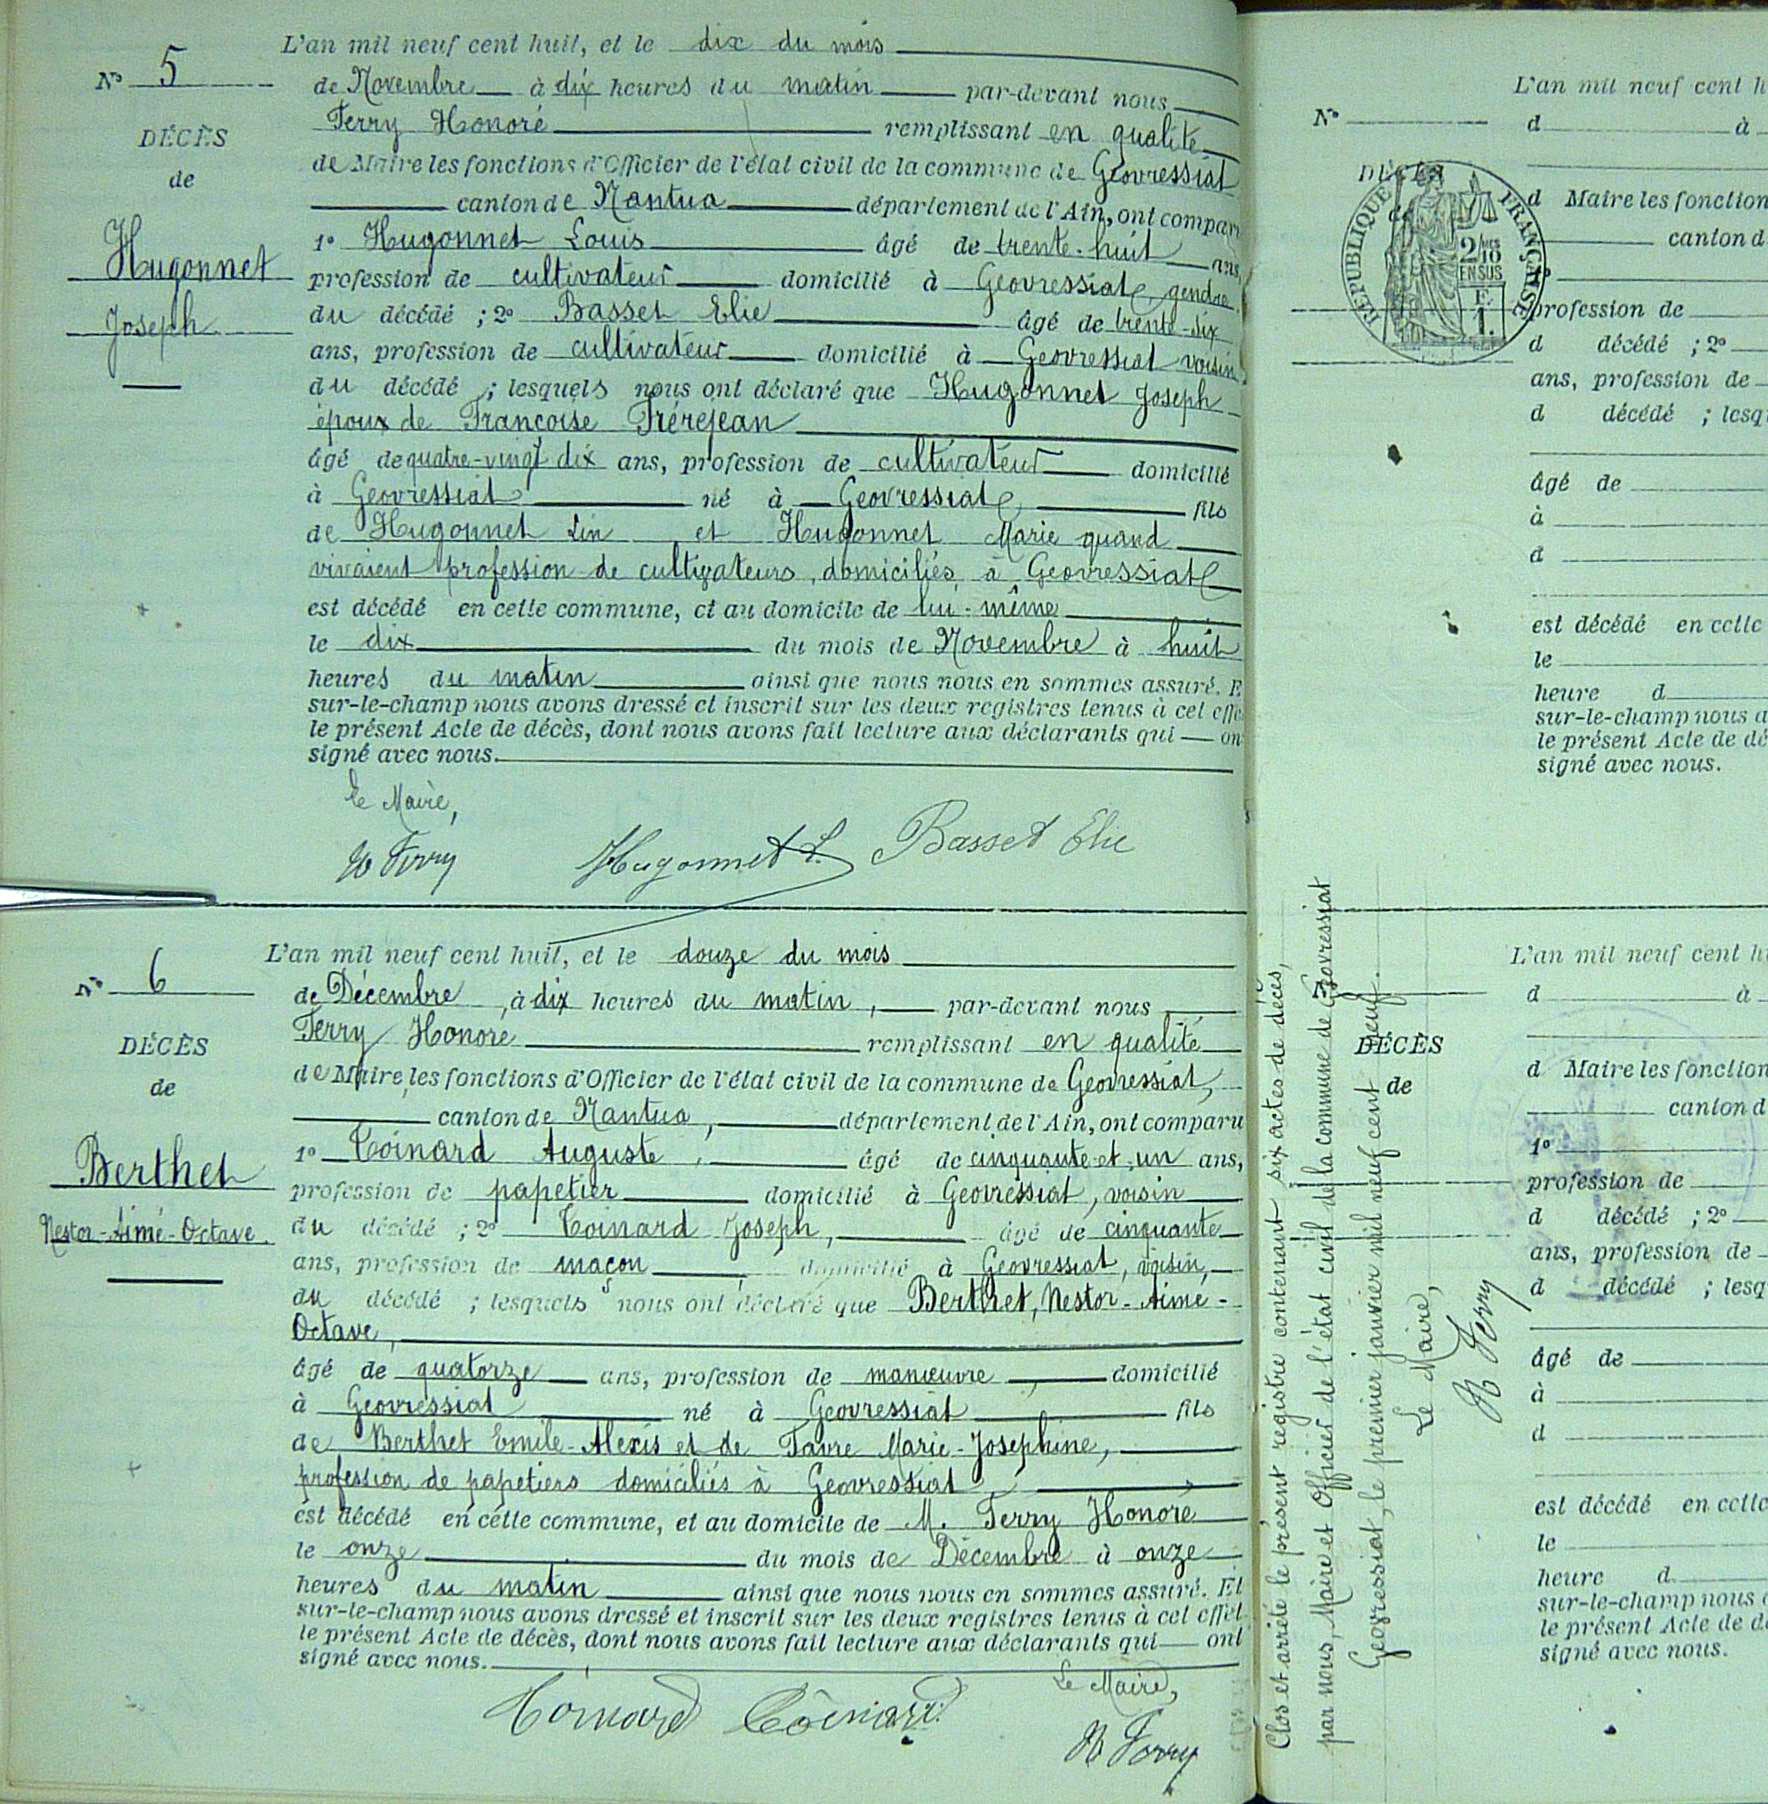 L'an mil neuf cent huit, et le dix du mois
N° 5
de Novembre à dix heures du matin par-devant nous
Ferry Honoré remplissant en qualité
DÉCÈS
de Maire les fonctions d'Officier de l'état civil de la commune de Géovressiat
de
canton de Nantua département de l'Ain, ont compar
1° Hugonnet Louis âgé de trente-huit ans,
Hugonnet
profession de cultivateur domicilié à Géovressiat gendre
Joseph
du décédé ; 2° Basset Elie âgé de trente-six
ans, profession de cultivateur domicilié à Géovressiat voisin
du décédé ; lesquels nous ont déclaré que Hugonnet Joseph
époux de Françoise Frèrejean
âgé de quatre-vingt dix ans, profession de cultivateur domicilié
à Géovressiat né à Géovressiat fils
de Hugonnet Lin et Hugonnet Marie quand
vivaient profession de cultivateurs, domiciliés à Géovressiat
est décédé en cette commune, et au domicile de lui-même
le dix du mois de Novembre à huit
heures du matin ainsi que nous nous en sommes assuré. E
sur-le-champ nous avons dressé et inscrit sur les deux registres tenus à cet effe
le présent Acte de décès, dont nous avons fait lecture aux déclarants qui on
signé avec nous.
Le Maire,
H Ferry Hugonnet L. Basset Elie
L'an mil neuf cent huit, et le douze du mois
N° 6
de Décembre, à dix heures du matin, par-devant nous
Ferry Honoré remplissant en qualité
DÉCÈS
de Maire les fonctions d'Officier de l'état civil de la commune de Géovressiat,
de
canton de Nantua, département de l'Ain, ont comparu
1° Coinard Auguste, âgé de cinquante et un ans,
Berthet
profession de papetier domicilié à Géovressiat, voisin
Nestor-Aimé-Octave.
du décédé ; 2° Coinard Joseph, âgé de cinquante
ans, profession de maçon domicilié à Géovressiat, voisin,
du décédé ; lesquels nous ont déclaré que Berthet, Nestor-Aimé-
Octave,
âgé de quatorze ans, profession de manœuvre, domicilié
à Géovressiat né à Géovressiat fils
de Berthet Emile-Alexis et de Favre Marie-Joséphine,
profession de papetiers domiciliés à Géovressiat,
est décédé en cette commune, et au domicile de M. Ferry Honoré
le onze du mois de Décembre à onze
heures du matin ainsi que nous nous en sommes assuré. Et
sur-le-champ nous avons dressé et inscrit sur les deux registres tenus à cet effet
le présent Acte de décès, dont nous avons fait lecture aux déclarants qui ont
signé avec nous.
Le Maire,
Coinard Coinard
H Ferry
Clos et arrêté le présent registre contenant six actes de décès,
par nous, Maire et Officier de l'état civil de la commune de Géovressiat
Géovressiat, le premier janvier mil neuf cent neuf.
Le Maire,
H Ferry
L'an mil neuf cent h
N°
d à
DÉCÈS
de
RÉPUBLIQUE FRANÇAISE
2/10
EN SUS
F.
1.
d Maire les fonction
canton d
profession de
d décédé ; 2°
ans, profession de
d décédé ; lesq
âgé de
à
d
est décédé en cette
le
heure d
sur-le-champ nous a
le présent Acte de dé
signé avec nous.
L'an mil neuf cent h
N°
d à
DÉCÈS
de
d Maire les fonction
canton d
1°
profession de
d décédé ; 2°
ans, profession de
d décédé ; lesq
âgé de
à
d
est décédé en cette
le
heure d
sur-le-champ nous
le présent Acte de d
signé avec nous.